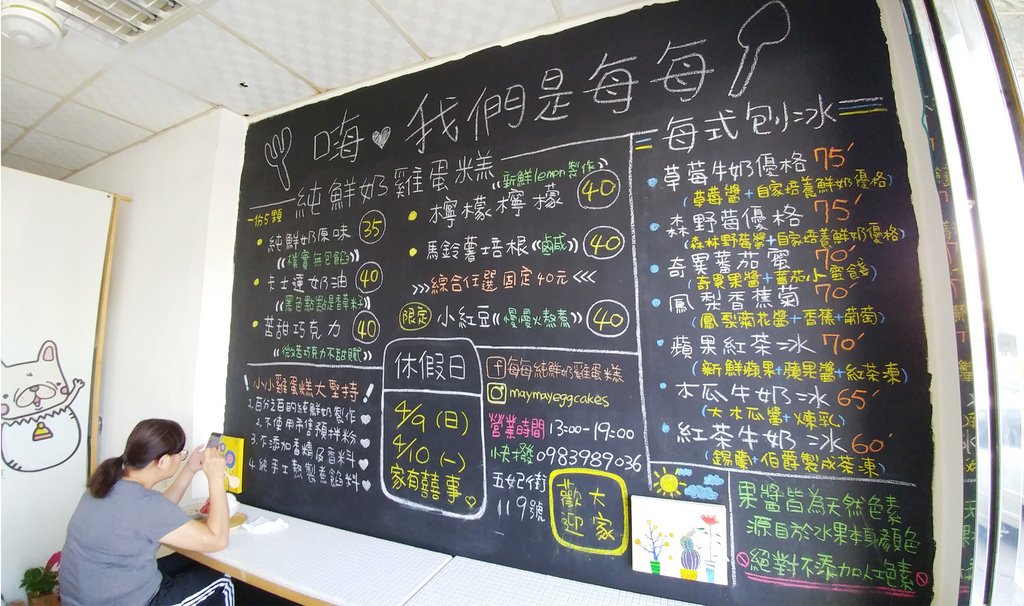 嗨♥我們是每每
純鮮奶雞蛋糕
一份5顆
純鮮奶原味 35
《樸實無包餡》
卡士達奶油 40
《黑色點點是香草籽》
苦甜巧克力 40
《微苦巧克力不甜膩》
《新鮮lemon製作》
檸檬檸檬 40
馬鈴薯培根《鹹》 40
>>>綜合任選固定40元<<<
限定 小紅豆《慢慢火熬煮》 40
小小雞蛋糕大堅持!
1.百分之百的純鮮奶製作♥
2.不使用市售預拌粉♥
3.不添加香精及香料♥
4.純手工熬製煮餡料♥
休假日
4/9(日)
4/10(一)
家有囍事
f 每每純鮮奶雞蛋糕
maymayeggcakes
營業時間 13:00-19:00
快撥 0983989036
五妃街
119號
歡迎大家
每式刨=冰
草莓牛奶優格 75'
(草莓醬+自家培養鮮奶優格)
森野莓優格 75'
(森林野莓醬+自家培養鮮奶優格)
奇異蕃茄蜜 70'
(奇異果醬+蕃茄小蜜餞)
鳳梨香蕉菊 70'
(鳳梨菊花醬+香蕉+葡萄)
蘋果紅茶=冰 70'
(新鮮蘋果+蘋果醬+紅茶凍)
木瓜牛奶=冰 65'
(大木瓜醬+煉乳)
紅茶牛奶=冰 60'
(錫蘭+伯爵製成茶凍)
果醬皆為天然色素
源自於水果本身顏色
絕對不添加人工色素